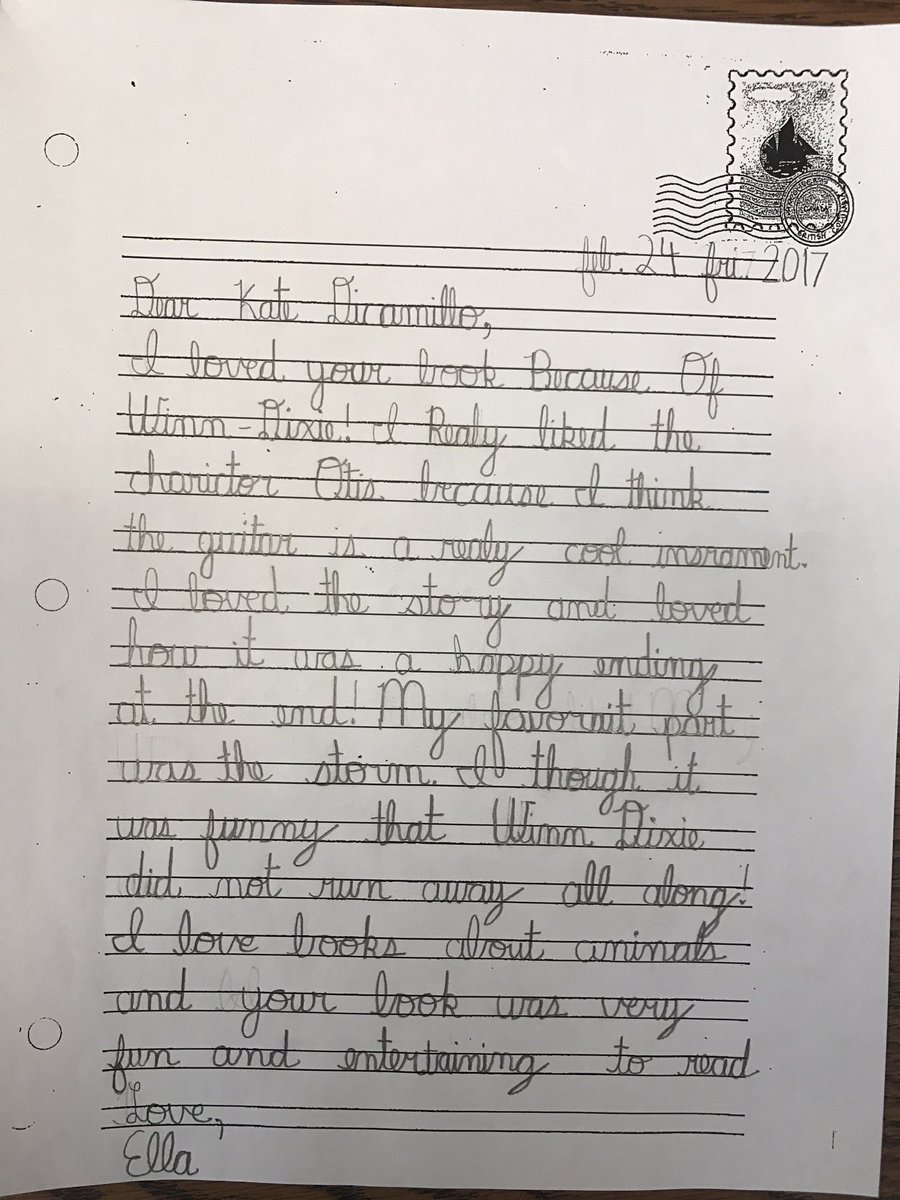 feb. 24 fri. 2017
Dear Kate Dicamillo,
I loved your book Because Of
Winn-Dixie! I Realy liked the
charictor Otis because I think
the guitar is a realy cool insrament.
I loved the story and loved
how it was a happy ending
at the end! My favoruit part
was the storm. I though it
was funny that Winn Dixie
did not run away all along!
I love books about aninals
and your book was very
fun and entertaining to read
Love,
Ella